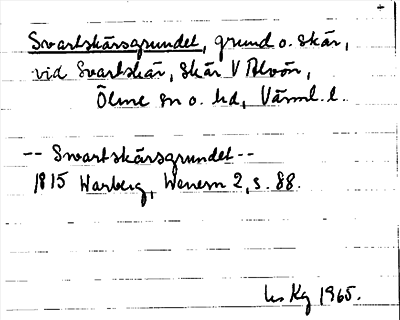 +
Svartskärsgrundet, grund o. skär,
vid Svartskär, skär V Alvön,
Ölme sn o. hd, Värml. l.
-- Svartskärsgrundet --
1815 Warberg, Wenern 2, s. 88.
Kg 1965.